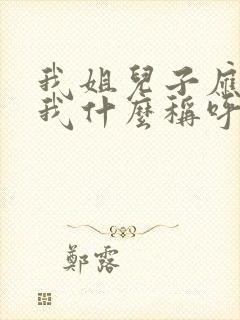 我姐兒子應
我什麼稱呼
鄭露